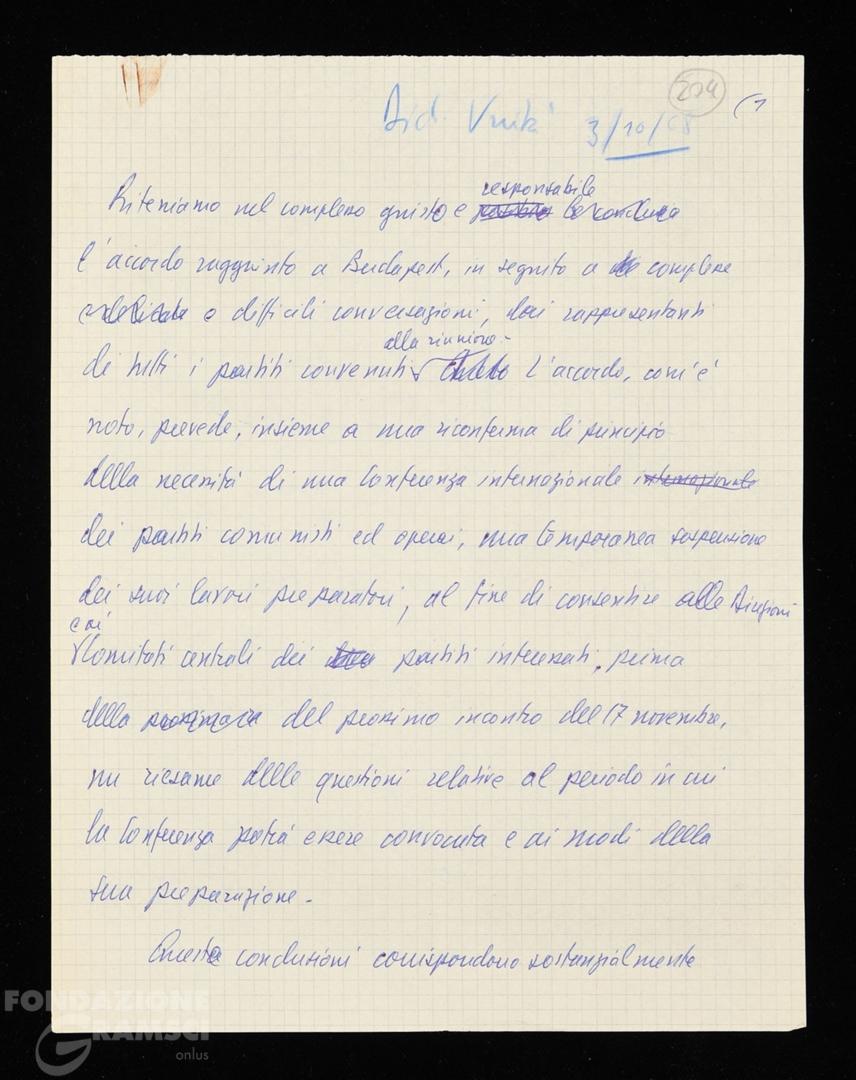 204
(1
Dich. Unità 3/10/68
responsabile
Riteniamo nel complesso giusto e
l'accordo raggiunto a Budapest, in seguito a complesse
e difficili conversazioni, dai rappresentanti
alla riunione.
di tutti i partiti convenuti L'accordo, com'è
noto, prevede, insieme a una riconferma di principio
della necessità di una Conferenza internazionale internazionale
dei partiti comunisti ed operai, una temporanea sospensione
dei suoi lavori preparatori, al fine di consentire alle Direzioni
e ai
Comitati centrali dei partiti interessati, prima
della del prossimo incontro del 17 novembre,
un riesame delle questioni relative al periodo in cui
la Conferenza potrà essere convocata e ai modi della
sua preparazione.
Queste conclusioni corrispondono sostanzialmente
FONDAZIONE
GRAMSCI
onlus